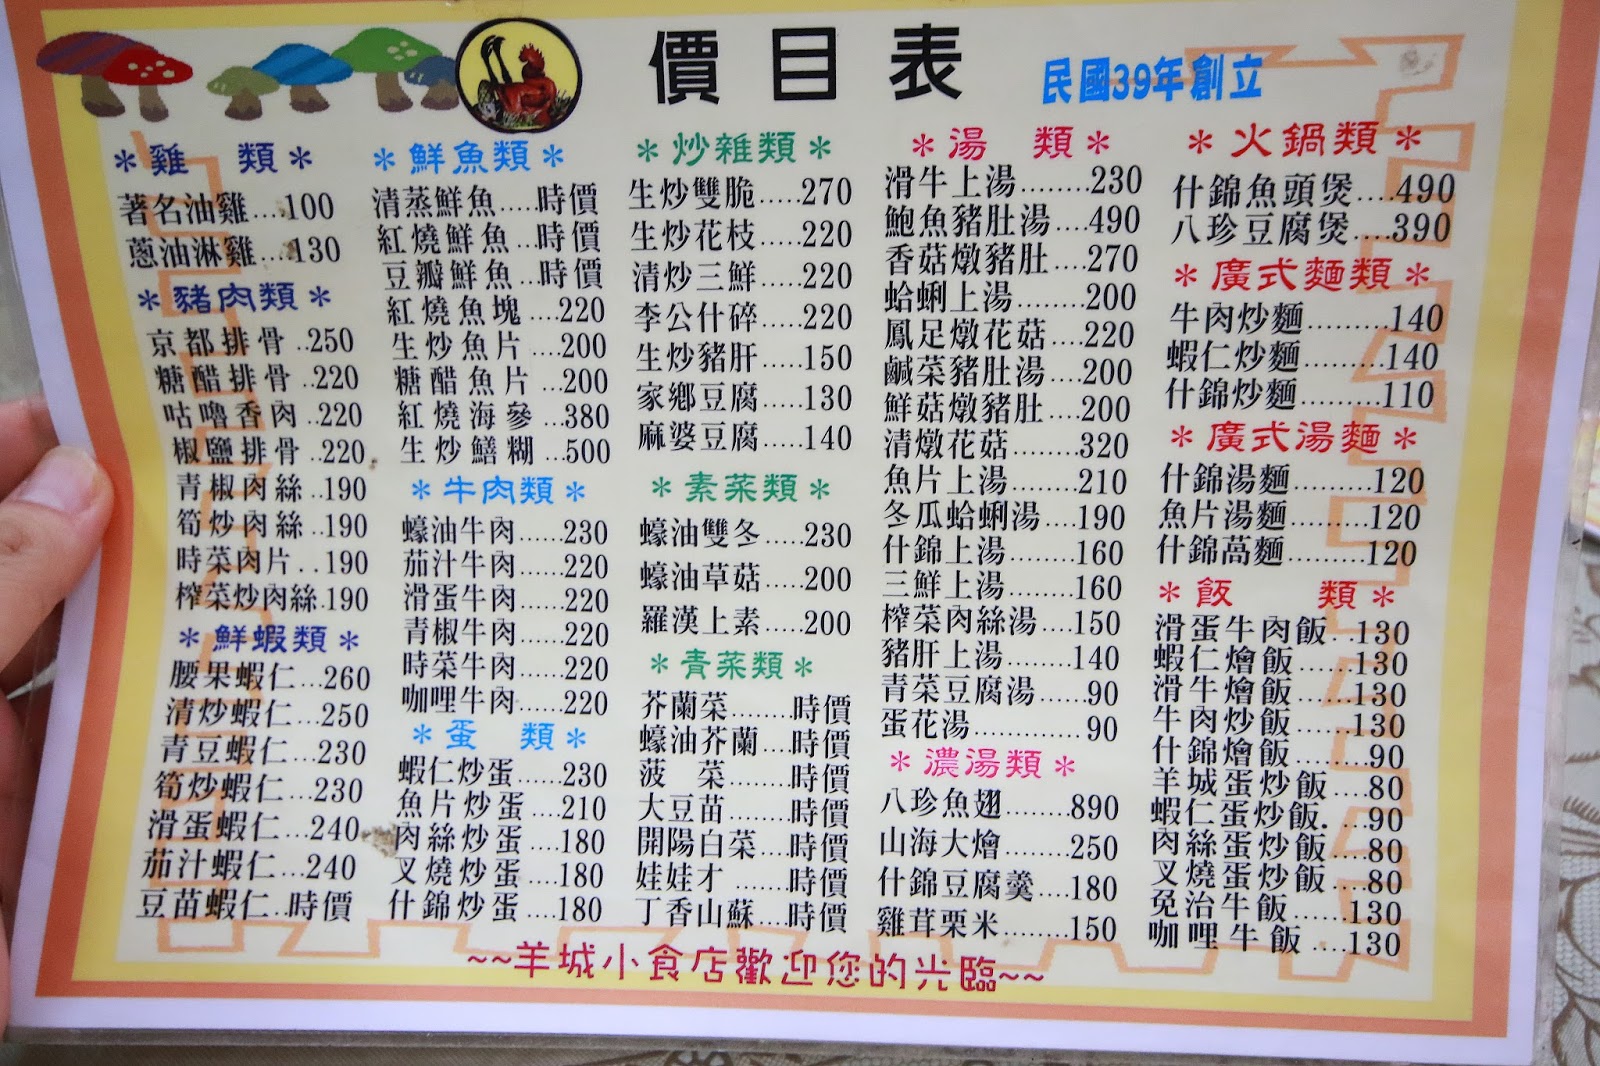 價目表
民國39年創立
＊雞 類＊
著名油雞....100
蔥油淋雞....130
＊豬肉類＊
京都排骨..250
糖醋排骨..220
咕嚕香肉..220
椒鹽排骨..220
青椒肉絲..190
筍炒肉絲..190
時菜肉片..190
榨菜炒肉絲.190
＊鮮蝦類＊
腰果蝦仁...260
清炒蝦仁...250
青豆蝦仁...230
筍炒蝦仁...230
滑蛋蝦仁...240
茄汁蝦仁...240
豆苗蝦仁..時價
＊鮮魚類＊
清蒸鮮魚.....時價
紅燒鮮魚...時價
豆瓣鮮魚...時價
紅燒魚塊....220
生炒魚片....200
糖醋魚片...200
紅燒海參...380
生炒鱔糊...500
＊牛肉類＊
蠔油牛肉......230
茄汁牛肉......220
滑蛋牛肉......220
青椒牛肉......220
時菜牛肉......220
咖哩牛肉......220
＊蛋 類＊
蝦仁炒蛋....230
魚片炒蛋....210
肉絲炒蛋....180
叉燒炒蛋....180
什錦炒蛋....180
＊炒雜類＊
生炒雙脆.....270
生炒花枝.....220
清炒三鮮.....220
李公什碎.....220
生炒豬肝.....150
家鄉豆腐.....130
麻婆豆腐.....140
＊素菜類＊
蠔油雙冬.....230
蠔油草菇.....200
羅漢上素.....200
＊青菜類＊
芥蘭菜........時價
蠔油芥蘭....時價
菠 菜........時價
大豆苗........時價
開陽白菜....時價
娃娃才.......時價
丁香山蘇....時價
＊湯 類＊
滑牛上湯........230
鮑魚豬肚湯....490
香菇燉豬肚....270
蛤蜊上湯........200
鳳足燉花菇....220
鹹菜豬肚湯....200
鮮菇燉豬肚....200
清燉花菇........320
魚片上湯........210
冬瓜蛤蜊湯....190
什錦上湯........160
三鮮上湯........160
榨菜肉絲湯....150
豬肝上湯........140
青菜豆腐湯......90
蛋花湯..............90
＊濃湯類＊
八珍魚翅........890
山海大燴........250
什錦豆腐羹....180
雞茸栗米........150
＊火鍋類＊
什錦魚頭煲....490
八珍豆腐煲....390
＊廣式麵類＊
牛肉炒麵.........140
蝦仁炒麵.........140
什錦炒麵.........110
＊廣式湯麵＊
什錦湯麵.........120
魚片湯麵.........120
什錦萵麵.........120
＊飯 類＊
滑蛋牛肉飯..130
蝦仁燴飯......130
滑牛燴飯......130
牛肉炒飯......130
什錦燴飯.......90
羊城蛋炒飯....80
蝦仁蛋炒飯....90
肉絲蛋炒飯....80
叉燒蛋炒飯....80
免治牛飯......130
咖哩牛飯....130
~~羊城小食店歡迎您的光臨~~